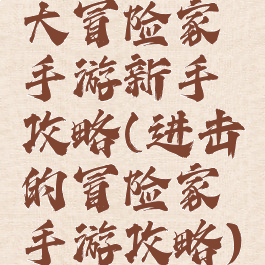 大冒险家
手游新手
攻略(进击
的冒险家
手游攻略)